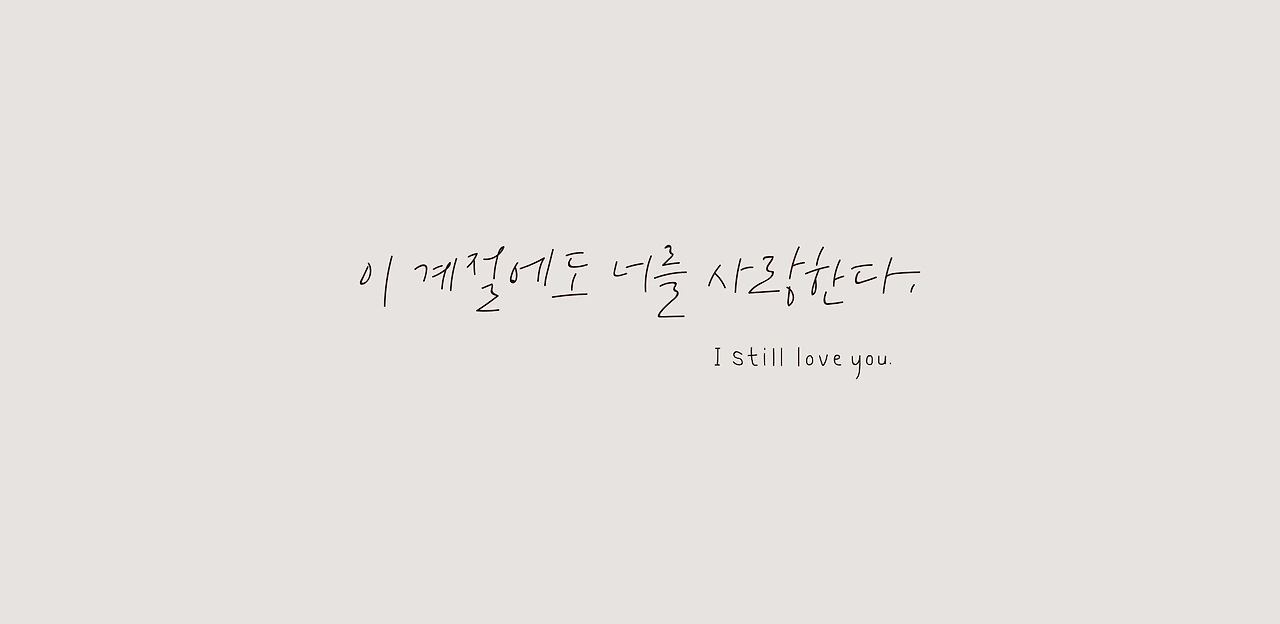 이 계절에도 너를 사랑한다.
I still love you.